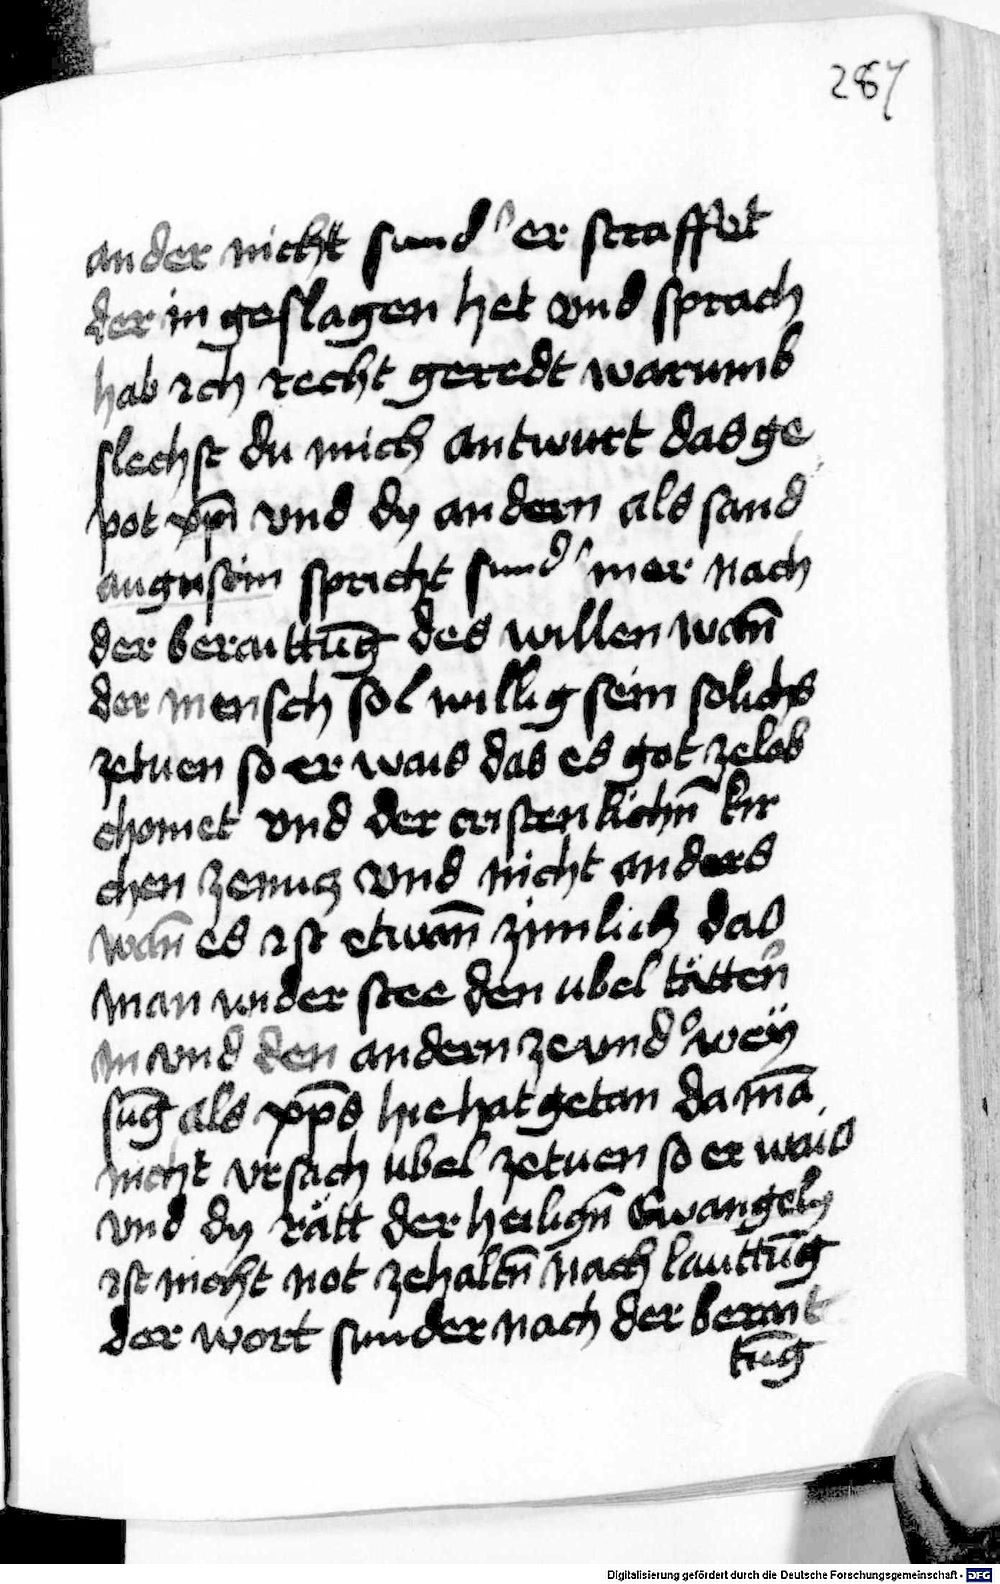 287
ander nicht sund' er straffet
der in geslagen het vnd sprach
hab ich recht geredt warumb
slechst du mich antwurt das ge
pot xp̄i vnd dy andern als sand
augustin spricht sund' mer nach
der beraittūg des willen wan̄
der mensch sol willig sein solichs
zetuen so er wais das es got zelob
chomet vnd der cristenlichn̄ kir
chen zenucz vnd nicht anders
wan̄ es ist etwan̄ zimlich das
man wider stee den ubel tätten
in vnd den andern ze vnd'wey
sūg als xp̄s hie hat getan da mā
nicht vrsach ubel zetuen so er wais
vnd dy rätt der heilign̄ Ewangely
ist nicht not zehaltn̄ nach lauttūg
der wort sunder nach der berait
tūg
Digitalisierung gefördert durch die Deutsche Forschungsgemeinschaft - DFG